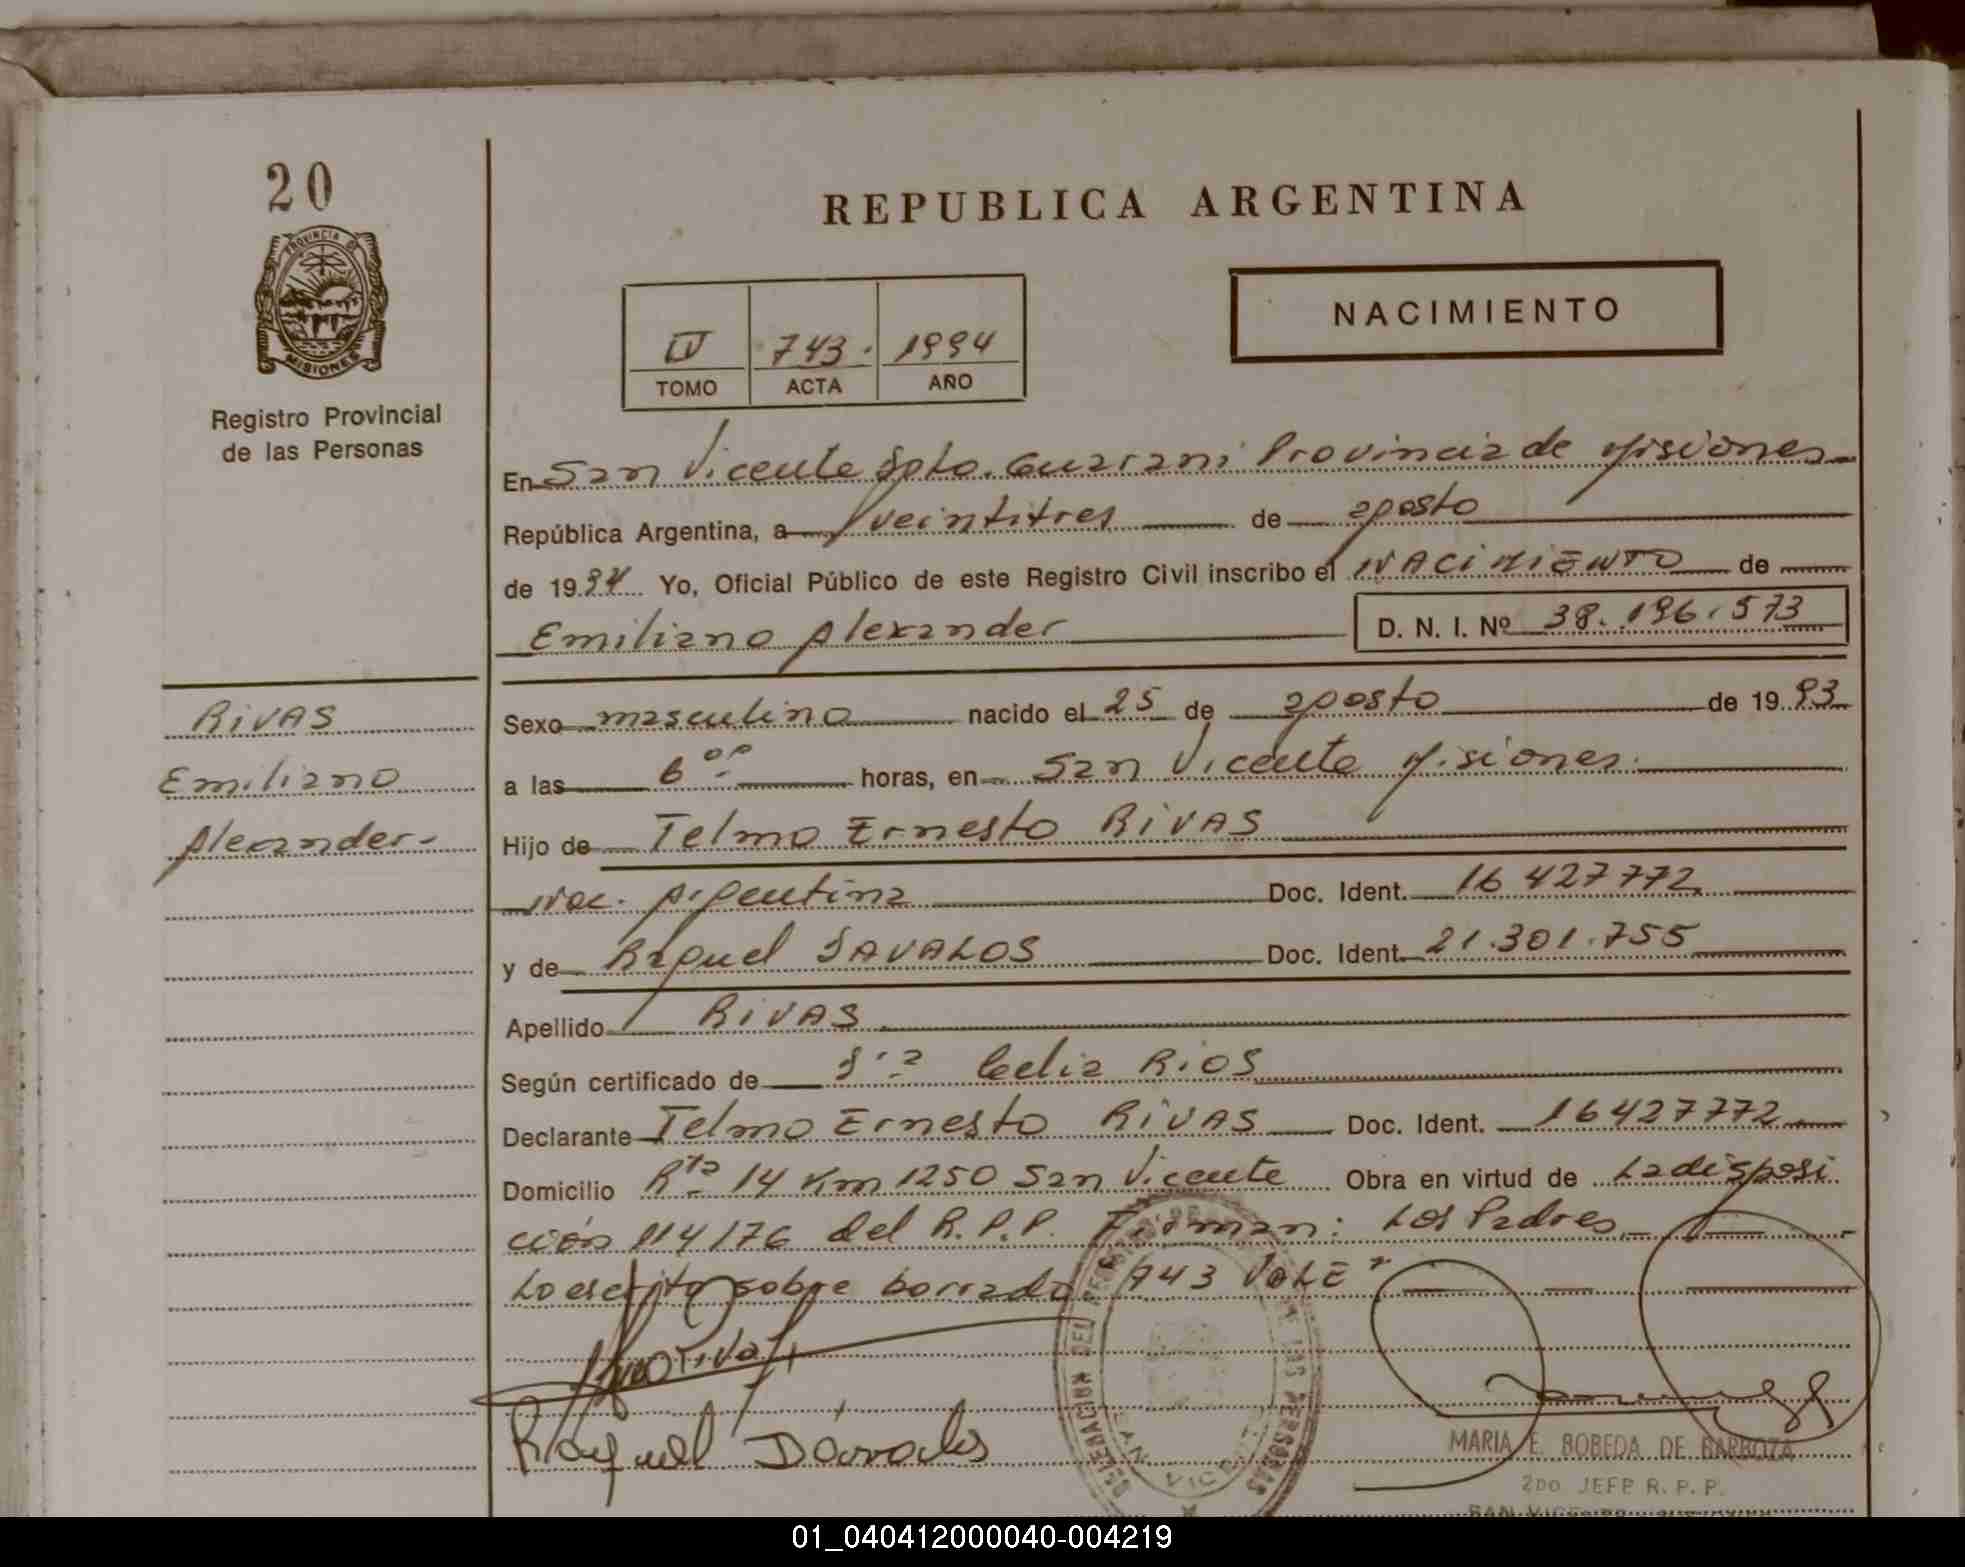 20
PROVINCIA DE
MISIONES
Registro Provincial
de las Personas
REPUBLICA ARGENTINA
NACIMIENTO
IV 743. 1994
TOMO ACTA AÑO
En San Vicente Dpto. Guarani Provincia de Misiones
República Argentina, a veintitres de agosto
de 1994 Yo, Oficial Público de este Registro Civil inscribo el NACIMIENTO de
Emiliano Alexander D. N. I. Nº 38.196.573
RIVAS
Emiliano
Alexander-
Sexo masculino nacido el 25 de agosto de 1993
a las 6 oo horas, en San Vicente Misiones.
Hijo de Telmo Ernesto RIVAS
Nac. Argentina Doc. Ident. 16 427772
y de Raquel DAVALOS Doc. Ident. 21.301.755
Apellido RIVAS
Según certificado de Celia RIOS
Declarante Telmo Ernesto RIVAS Doc. Ident. 16427772
Domicilio Rta 14 Km 1250 San Vicente Obra en virtud de La disposi
ción 114/76 del R.P.P. Firman: Los Padres
Lo escrito sobre borrado "743 VALE"
Raquel Davalos
DELEGACION DEL REGISTRO DE LAS PERSONAS
SAN VICENTE
MARIA E. BOBEDA DE BARBOZA
2DO JEFE R. P. P.
01_040412000040-004219